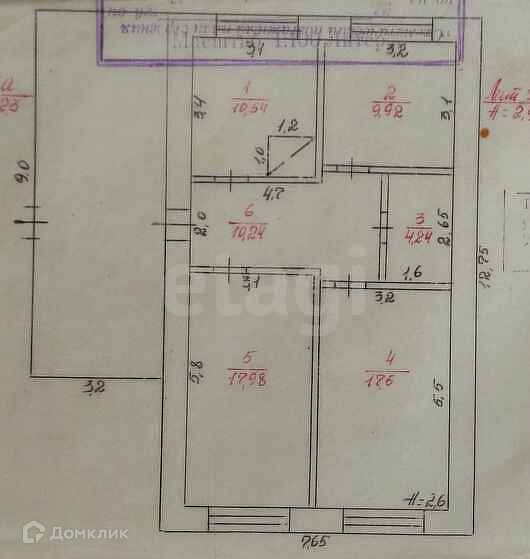 3,1
3,2
а
23
1
10,54
3,4
2
9,92
3,1
Лит
H=2,
1,2
1,0
9,0
4,7
6
10,24
2,0
3
4,24
2,65
1,6
12,75
3,1
3,2
etagi
5
17,98
5,8
4
17,6
5,5
3,2
H=2,6
7,65
Домклик